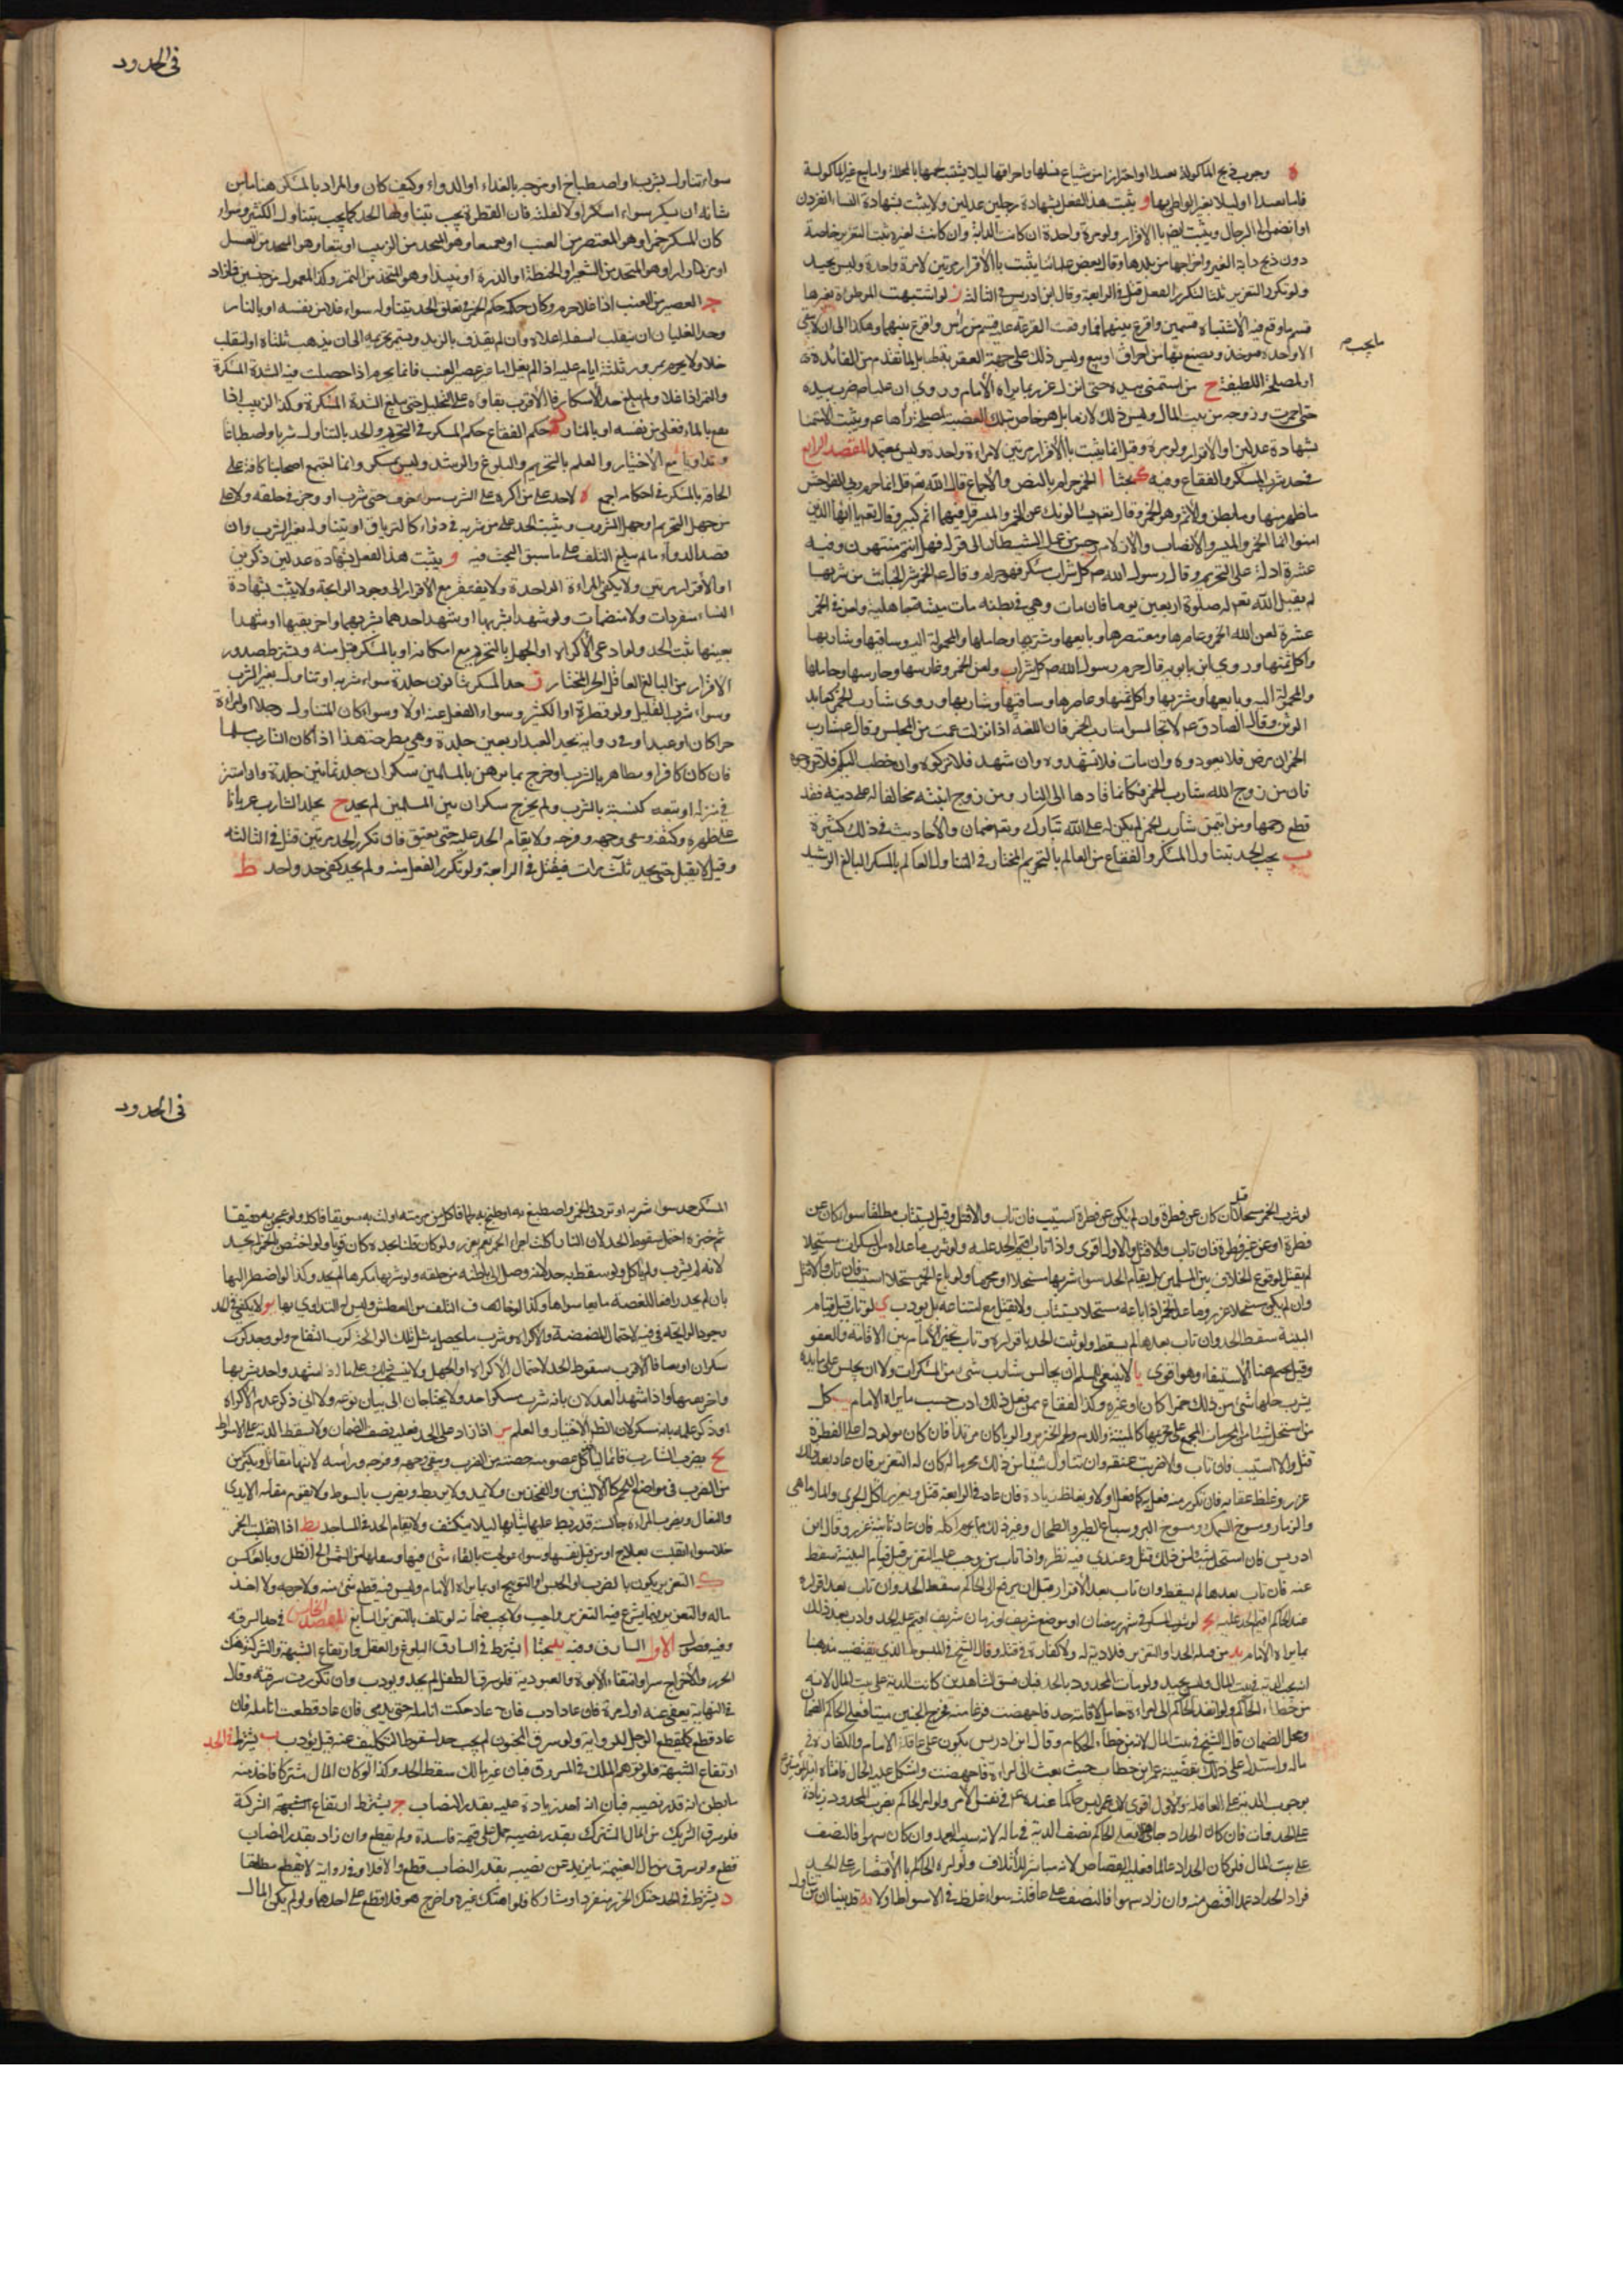 وجوب ذبح المأكولة تعبدا او احترازا من شياع نسلها واحراقها ليلا يشتبه لحمها بالمحللة واما بيع غير المأكولة
فاما تعبدا او ليلا يعير الواطي بها و يثبت هذا الفعل بشهادة رجلين عدلين ولا يثبت بشهادة النساء انفردن
او انضممن الى الرجال ويثبت ايضا بالاقرار ولو مرة واحدة ان كانت الدابة له وان كانت لغيره ثبت التعزير خاصة
دون ذبح دابة الغير واخراجها من بلدها وقال بعض علمائنا لا يثبت بالاقرار الا مرتين لا مرة واحدة وليس بجيد
ولو تكرر التعزير ثلثا لتكرر الفعل قتل في الرابعة وقال ابن ادريس في الثالثة ز لو اشتبهت الموطوءة بغيرها
قسم ما وقع فيه الاشتباه قسمين واقرع بينهما فما وقعت القرعة عليه قسم من رأس واقرع بينهما وهكذا الى ان لا يبقى
الا واحدة فيؤخذ ويصنع بها من احراق او بيع وليس ذلك على جهة العقوبة بل لما تقدم من الفائدة
او لمصلحة اللطيفة ح من استمنى بيده حتى انزل عزر بما يراه الامام وروي ان عليا ضرب يده
حتى احمرت وزوجه من بيت المال وليس ذلك لازما بل هو خاص بتلك القضية لمصلحة رآها عم ويثبت الاستمنا
بشهادة عدلين او الاقرار ولو مرة وقيل انما يثبت بالاقرار مرتين لا مرة واحدة وليس بمعتمد المقصد الرابع
في حد شرب المسكر والفقاع وفيه ك بحثا ا الخمر حرام بالنص والاجماع قال الله تعم قل انما حرم ربي الفواحش
ما ظهر منها وما بطن والاثم وهو الخمر وقال تعم يسألونك عن الخمر والميسر قل فيهما اثم كبير وقال تعم يا ايها الذين
امنوا انما الخمر والميسر والانصاب والازلام رجس من عمل الشيطان الى قوله فهل انتم منتهون وفيه
عشرة ادلة على التحريم وقال رسول الله ص كل شراب مسكر فهو حرام وقال عم الخمر شر الخبائث من شربها
لم يقبل الله تعم له صلوة اربعين يوما فان مات وهي في بطنه مات ميتة جاهلية ولعن في الخمر
عشرة لعن الله الخمر وعاصرها ومعتصرها وبايعها ومشتريها وحاملها والمحمولة اليه وساقيها وشاربها
واكل ثمنها وروي ابن بابويه قال حرم رسول الله ص كل شراب ولعن الخمر وغارسها وحارسها وحاملها
والمحمولة اليه وبايعها ومشتريها واكل ثمنها وعاصرها وساقيها وشاربها وروي شارب الخمر كعابد
الوثن وقال الصادق عم لا تجالسوا شارب الخمر فان اللعنة اذا نزلت عمت من المجلس وقال عم شارب
الخمر ان مرض فلا تعودوه وان مات فلا تشهدوه وان شهد فلا تزكوه وان خطب اليكم فلا تزوجوه
فان من زوج ابنته شارب الخمر فكانما قادها الى النار ومن زوج ابنته مخالفا له على دينه فقد
قطع رحمها ومن ائتمن شارب الخمر لم يكن له على الله تبارك وتعم ضمان والاحاديث في ذلك كثيرة
ب يجب الحد بتناول المسكر والفقاع من العالم بالتحريم المختار في التناول العالم بالمسكر البالغ الرشيد
ما يجب م
في الحدود
سواء تناوله بشرب او اصطباغ او مزجه بالغذاء او الدواء وكيف كان والمراد بالمسكر هنا ما من
شانه ان يسكر سواء اسكر اولا لقلته فان القطرة يجب بتناولها الحد كما يجب بتناول الكثير وسواء
كان المسكر خمرا وهو المعتصر من العنب او نقيعا وهو المتخذ من الزبيب او بتعا وهو المتخذ من العسل
او مزرا وهو المتخذ من الشعير او الحنطة او الذرة او نبيذا وهو المتخذ من التمر وكذا المعمول من جنسين فازاد
ج العصير من العنب اذا غلا حرم وكان حكمه حكم الخمر في تعلق الحد بتناوله سواء غلا من نفسه او بالنار
وحد الغليان ان ينقلب اسفله اعلاه وان لم يقذف بالزبد ويستمر تحريمه الى ان يذهب ثلثاه او ينقلب
خلا ولا يحرم بمرور ثلثة ايام عليه اذا لم يغل اما غير عصير العنب فانما يحرم اذا حصلت فيه الشدة المسكرة
والتمر اذا غلا ولم يبلغ حد الاسكار فالاقرب بقاؤه على التحليل حتى يبلغ الشدة المسكرة وكذا الزبيب اذا
نقع بالماء فغلى من نفسه او بالنار د حكم الفقاع حكم المسكر في التحريم والحد بالتناول شربا واصطباغا
وتداويا مع الاختيار والعلم بالتحريم والبلوغ والرشد وليس بمسكر وانما اجمع اصحابنا كافة على
الحاقه بالمسكر في احكامه اجمع ه لا حد على من اكره على الشرب سواء خوف حتى شرب او وجر في حلقه ولا على
من جهل التحريم او جهل المشروب ويثبت الحد على من شربه في دواء كالترياق او تناوله بغير الشرب وان
قصد الدواء ما لم يبلغ التلف على ما سبق البحث فيه و يثبت هذا الفعل بشهادة عدلين ذكرين
او الاقرار مرتين ولا يكفي المرة الواحدة ولا يفتقر مع الاقرار الى وجود الرايحة ولا يثبت بشهادة
النساء منفردات ولا منضمات ولو شهدا بشربها او شهد احدهما بشربها واخر بقيئها او شهدا
بقيئها ثبت الحد ولو ادعى الاكراه او الجهل بالتحريم مع امكانه او بالمسكر قبل منه ويشترط صدور
الاقرار من البالغ العاقل الحر المختار ز حد المسكر ثمانون جلدة سواء شربه او تناوله بغير الشرب
وسواء شرب القليل ولو قطرة او الكثير وسواء انفعل عنه اولا وسواء كان المتناول رجلا او امراة
حرا كان او عبدا وفي رواية يحد العبد اربعين جلدة وهي مطرحة هذا اذا كان الشارب مسلما
فان كان كافرا وتظاهر بالشرب او خرج بما بين المسلمين سكران جلد ثمانين جلدة وان استتر
في منزله او بيعه كنيسته بالشرب ولم يخرج سكران بين المسلمين لم يحد ح يجلد الشارب عريانا
على ظهره وكتفه ويتقى وجهه وفرجه ولا يقام الحد عليه حتى يفيق فان تكرر الحد مرتين قتل في الثالثة
وقيل لا يقتل حتى يحد ثلث مرات فيقتل في الرابعة ولو تكرر الفعل منه ولم يحد كفى حد واحد ط
لو شرب الخمر مستحلا قتل ان كان عن فطرة وان لم يكن عن فطرة استتيب فان تاب والا قتل وقيل يستتاب مطلقا سواء كان عن
فطرة او عن غير فطرة فان تاب والا قتل والاول اقوى واذا تاب اقيم الحد عليه ولو شرب ما عداه من المسكرات مستحلا
لم يقتل لوقوع الخلاف بين المسلمين بل يقام الحد سواء شربها مستحلا او محرما ولو باع الخمر مستحلا استتيب فان تاب والا قتل
وان لم يكن مستحلا عزر وما عدا الخمر اذا باعه مستحلا يستتاب ولا يقتل مع امتناعه بل يؤدب ي لو تاب قبل قيام
البينة سقط الحد وان تاب بعدها لم يسقط ولو ثبت الحد باقراره وتاب تخير الامام بين الاقامة والعفو
وقيل يحتم هنا الاستيفاء وهو اقوى يا لا ينبغي لمسلم ان يجالس شارب شيء من المسكرات ولا ان يجلس على مائدة
يشرب عليها شيء من ذلك خمرا كان او غيره وكذا الفقاع ممن يفعل ذلك ادب حسب ما يراه الامام يب كل
من استحل شيئا من المحرمات المجمع على تحريمها كالميتة والدم ولحم الخنزير والربا كان مرتدا فان كان مولودا على الفطرة
قتل والا استتيب فان تاب والا ضربت عنقه وان تناول شيئا من ذلك محرما له كان له التعزير فان عاد بعد ذلك
عزر وغلظ عقابه فان تكرر منه فعل به كما فعل اولا ويغلظ زيادة فان عاد في الرابعة قتل ويعزر آكل الجري والمارماهي
والزمار ومسوخ السمك ومسوخ البر وسباع الطير والطحال وغير ذلك مما يحرم اكله فان عاد ثانية عزر وقال ابن
ادريس فان استحل شيئا من ذلك قتل وعندي فيه نظر واذا تاب من وجب عليه التعزير قبل قيام البينة سقط
عنه فان تاب بعدها لم يسقط وان تاب بعد الاقرار قبل ان يرفع الى الحاكم سقط الحد وان تاب بعد اقراره
عند الحاكم اقيم الحد عليه يج لو شرب المسكر في شهر رمضان او موضع شريف او زمان شريف اقيم عليه الحد وادب بعد ذلك
بما يراه الامام يد من قتله الحد او التعزير فلا دية له ولا كفارة في قتله وقال الشيخ في المبسوط الذي يقتضيه مذهبنا
انه يجب الدية في بيت المال وليس بجيد ولو مات المحدود بالحد فبان فسق الشاهدين كانت الدية على بيت المال لانه
من خطاء الحاكم ولو انفذ الحاكم الى امراة حامل لاقامة حد فاجهضت فزعا منه فخرج الجنين ميتا فعلى الحاكم الضمان
ومحل الضمان قال الشيخ في بيت المال لانه من خطاء الحكام وقال ابن ادريس يكون على عاقلة الامام والكفارة في
ماله واستدل على ذلك بقضية عمر بن خطاب حيث بعث الى امراة فاجهضت واشكل عليه الحال فافتاه امير المؤمنين
بوجوب الدية على العاقلة والاول اقوى لان عمر ليس حاكما عنده عم في نفس الامر ولو امر الحاكم بضرب المحدود زيادة
على الحد فمات فان كان الحداد جاهلا فعلى الحاكم نصف الدية في ماله لانه سبب العمد وان كان سهوا فالنصف
على بيت المال فلو كان الحداد عالما فعليه القصاص لانه مباشر للاتلاف ولو امره الحاكم بالاقتصار على الحد
فزاد الحداد عمدا اقتص منه وان زاد سهوا فالنصف على عاقلته سواء غلط في الاسواط اولا يه قد بينا ان من تناول
في الحدود
المسكر حد سواء شربه او ثرد في الخمر واصطبغ به او طبخ به لحما فاكل من مرقته او لت به سويقا فاكله ولو عجن به دقيقا
ثم خبزه احتمل سقوط الحد لان النار اكلت اجزاء الخمر نعم يعزر ولو كان قلنا بحده كان قويا ولو احتقن بالخمر لم يحد
لانه لم يشرب ولم ياكل ولو سقط به حد لانه وصل الى باطنه من حلقه ولو شربها مكرها لم يحد وكذا لو اضطر اليها
بان لم يجد دافعا للغصة مايعا سواها وكذا لو خاف التلف من العطش وليس له التداوي بها يو لا يكفي في الحد
وجود الرايحة في فيه لاحتمال المضمضة والاكراه وشرب ما يحصل به مثل تلك الرايحة كرب التفاح ولو وجد
سكران او تقيا فالاقرب سقوط الحد لاحتمال الاكراه او الجهل ولا ينسحب ذلك على ما اذا شهد واحد بشربها
واخر بقيئها واذا شهد العدلان بانه شرب مسكرا حد ولا يحتاجان الى بيان نوعه ولا الى ذكر عدم الاكراه
او ذكر علمه بانه مسكر لان الظاهر الاختيار والعلم يز اذا زاد على الحد فعليه نصف الضمان ولا يسقط الدية على الاسواط
يح يضرب الشارب قائما ليأخذ كل عضو منه حصته من الضرب ويتقى وجهه وفرجه ورأسه لانها مقاتل ويكثر من
من الضرب في مواضع اللحم كالاليتين والفخذين ولا يمد ولا يربط ويضرب بالسوط ولا يقوم مقامه الايدي
والنعال ويضرب المراة جالسة قد ربط عليها ثيابها ليلا ينكشف ولا يقام الحد في المساجد يط اذا انقلبت الخمر
خلا سواء انقلبت بعلاج او من قبل نفسها وسواء عولجت بالقاء شيء فيها او بنقلها من الشمس الى الظل وبالعكس
ك التعزير يكون بالضرب او الحبس او التوبيخ او بما يراه الامام وليس فيه قطع شيء منه ولا جرحه ولا اخذ
ماله والتعزير فيما يشرع فيه التعزير واجب ولا يجب ضمانه لو تلف بالتعزير السايغ المقصد الخامس في حد السرقة
وفيه فصول الاول السارق وفيه يد بحثا ا يشترط في السارق البلوغ والعقل وارتفاع الشبهة والشركة وهتك
الحرز والاخراج سرا وانتفاء الابوة والعبودية فلو سرق الطفل لم يحد ويؤدب وان تكررت سرقته وقال
في النهاية يعفى عنه اول مرة فان عاد ادب فان عاد حكت انامله حتى تدمى فان عاد قطعت انامله فان
عاد قطع كما يقطع الرجل للرواية ولو سرق المجنون لم يجب حد لسقوط التكليف عنه قيل يؤدب ب يشترط في الحد
ارتفاع الشبهة فلو توهم الملك في المسروق فبان غير مالك سقط الحد وكذا لو كان المال مشتركا فاخذ منه
ما يظن انه قدر نصيبه فبان انه اخذ زيادة عليه بقدر النصاب ج يشترط ارتفاع الشبهة الشركة
فلو سرق الشريك من المال المشترك بقدر نصيبه حمل على قسمة فاسدة ولم يقطع وان زاد بقدر النصاب
قطع ولو سرق من مال الغنيمة ما يزيد عن نصيبه بقدر النصاب قطع والا فلا وفي رواية لا يقطع مطلقا
د يشترط في الحد هتك الحرز منفردا او مشاركا فلو هتك غيره واخرج هو فلا قطع على احدهما ولو لم يكن المال